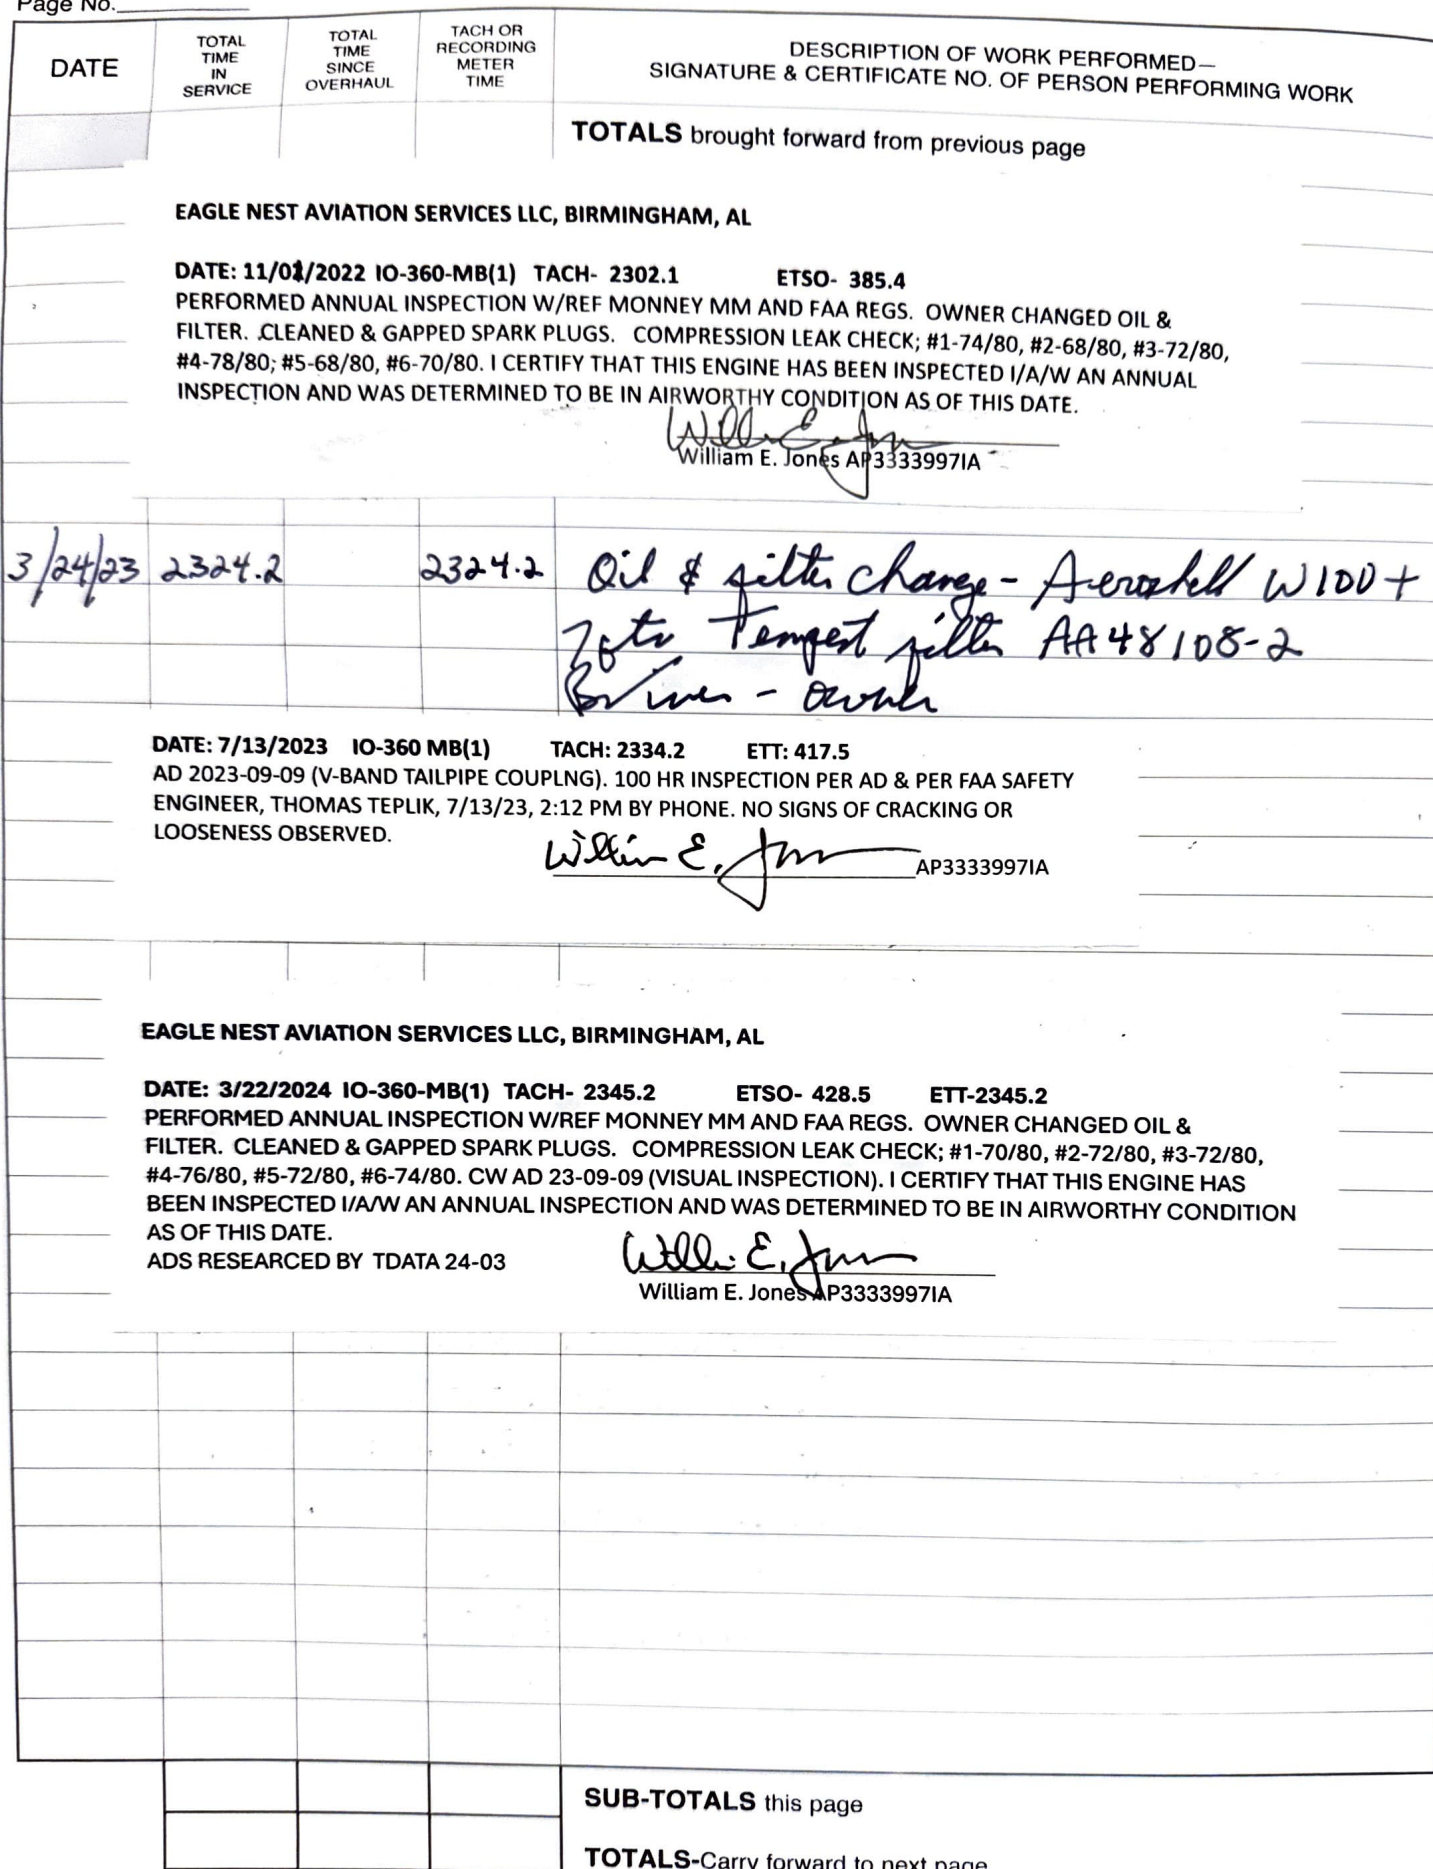 Page No.
DATE
TOTAL
TIME
IN
SERVICE
TOTAL
TIME
SINCE
OVERHAUL
TACH OR
RECORDING
METER
TIME
DESCRIPTION OF WORK PERFORMED—
SIGNATURE & CERTIFICATE NO. OF PERSON PERFORMING WORK
TOTALS brought forward from previous page
EAGLE NEST AVIATION SERVICES LLC, BIRMINGHAM, AL
DATE: 11/01/2022 IO-360-MB(1) TACH- 2302.1 ETSO- 385.4
PERFORMED ANNUAL INSPECTION W/REF MONNEY MM AND FAA REGS. OWNER CHANGED OIL &
FILTER. CLEANED & GAPPED SPARK PLUGS. COMPRESSION LEAK CHECK; #1-74/80, #2-68/80, #3-72/80,
#4-78/80; #5-68/80, #6-70/80. I CERTIFY THAT THIS ENGINE HAS BEEN INSPECTED I/A/W AN ANNUAL
INSPECTION AND WAS DETERMINED TO BE IN AIRWORTHY CONDITION AS OF THIS DATE.
William E. Jones AP3333997IA
3/24/23 2324.2 2324.2 Oil & filter change - Aeroshell W100+
7qts Tempest filter AA48108-2
- owner
DATE: 7/13/2023 IO-360 MB(1) TACH: 2334.2 ETT: 417.5
AD 2023-09-09 (V-BAND TAILPIPE COUPLNG). 100 HR INSPECTION PER AD & PER FAA SAFETY
ENGINEER, THOMAS TEPLIK, 7/13/23, 2:12 PM BY PHONE. NO SIGNS OF CRACKING OR
LOOSENESS OBSERVED.
William E. Jones AP3333997IA
EAGLE NEST AVIATION SERVICES LLC, BIRMINGHAM, AL
DATE: 3/22/2024 IO-360-MB(1) TACH- 2345.2 ETSO- 428.5 ETT-2345.2
PERFORMED ANNUAL INSPECTION W/REF MONNEY MM AND FAA REGS. OWNER CHANGED OIL &
FILTER. CLEANED & GAPPED SPARK PLUGS. COMPRESSION LEAK CHECK; #1-70/80, #2-72/80, #3-72/80,
#4-76/80, #5-72/80, #6-74/80. CW AD 23-09-09 (VISUAL INSPECTION). I CERTIFY THAT THIS ENGINE HAS
BEEN INSPECTED I/A/W AN ANNUAL INSPECTION AND WAS DETERMINED TO BE IN AIRWORTHY CONDITION
AS OF THIS DATE.
ADS RESEARCED BY TDATA 24-03
William E. Jones
William E. Jones AP3333997IA
SUB-TOTALS this page
TOTALS-Carry forward to next page